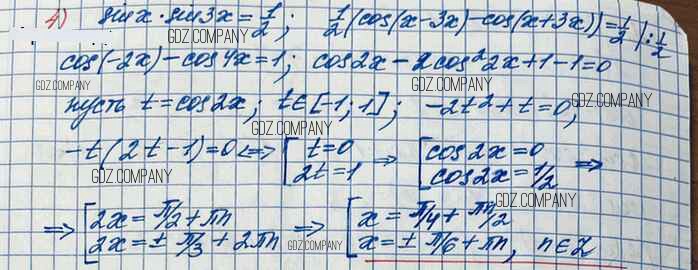 4) sinx·sin3x = 1/2; 1/2(cos(x-3x)-cos(x+3x)) = 1/2 |: 1/2
GDZ.COMPANY
cos(-2x) - cos4x = 1; cos2x - 2cos²2x + 1 - 1 = 0
GDZ.COMPANY GDZ.COMPANY
пусть t = cos2x; t ∈ [-1; 1]; -2t² + t = 0;
GDZ.COMPANY GDZ.COMPANY
-t(2t-1) = 0 <=> [ t = 0 => [ cos2x = 0
2t = 1 cos2x = 1/2 =>
GDZ.COMPANY GDZ.COMPANY
=> [ 2x = π/2 + πn => [ x = π/4 + πn/2
2x = ± π/3 + 2πn x = ± π/6 + πn, n ∈ Z
GDZ.COMPANY